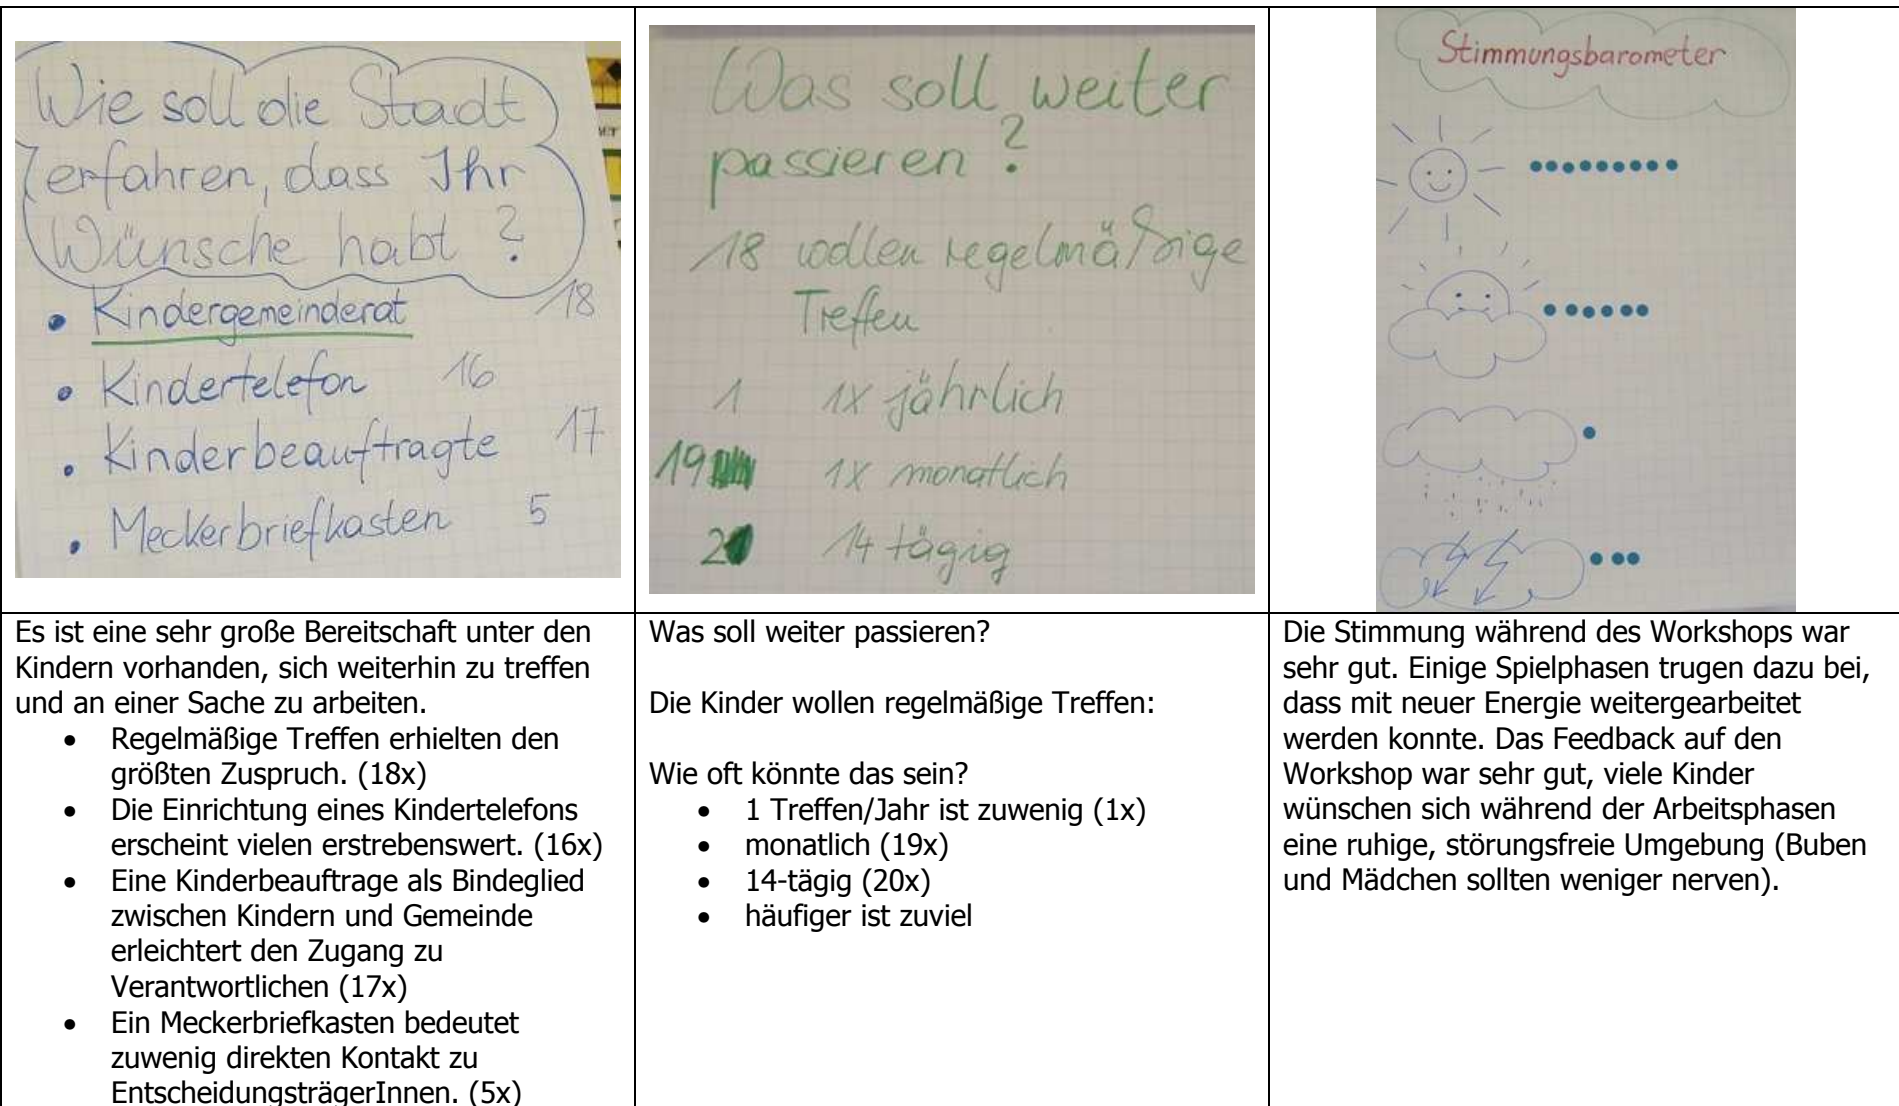 Wie soll die Stadt
erfahren, dass Ihr
Wünsche habt ?
• Kindergemeinderat 18
• Kindertelefon 16
• Kinderbeauftragte 17
• Meckerbriefkasten 5
Was soll weiter
passieren ?
18 wollen regelmäßige
Treffen
1 1x jährlich
19 1x monatlich
20 14 tägig
Stimmungsbarometer
Es ist eine sehr große Bereitschaft unter den
Kindern vorhanden, sich weiterhin zu treffen
und an einer Sache zu arbeiten.
• Regelmäßige Treffen erhielten den
größten Zuspruch. (18x)
• Die Einrichtung eines Kindertelefons
erscheint vielen erstrebenswert. (16x)
• Eine Kinderbeauftrage als Bindeglied
zwischen Kindern und Gemeinde
erleichtert den Zugang zu
Verantwortlichen (17x)
• Ein Meckerbriefkasten bedeutet
zuwenig direkten Kontakt zu
EntscheidungsträgerInnen. (5x)
Was soll weiter passieren?
Die Kinder wollen regelmäßige Treffen:
Wie oft könnte das sein?
• 1 Treffen/Jahr ist zuwenig (1x)
• monatlich (19x)
• 14-tägig (20x)
• häufiger ist zuviel
Die Stimmung während des Workshops war
sehr gut. Einige Spielphasen trugen dazu bei,
dass mit neuer Energie weitergearbeitet
werden konnte. Das Feedback auf den
Workshop war sehr gut, viele Kinder
wünschen sich während der Arbeitsphasen
eine ruhige, störungsfreie Umgebung (Buben
und Mädchen sollten weniger nerven).